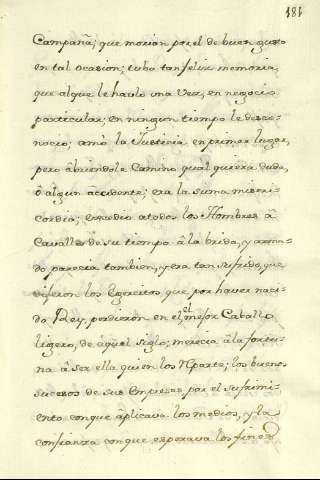 181
Campaña; que morian por el de buen gusto
en tal ocasion; tubo tan feliz memoria,
que al que le hablo una vez, en negocio
particular, en ningun tiempo le desco-
nocio; amò la Justicia en primer lugar,
pero âbriendole Camino qual quiera duda,
ô algun accidente; era la suma miseri-
cordia; excedio a todos los Hombres â
Cavallo de su tiempo â la brida, y arma-
do parecia tambien, y era tan sufrido, que
dijeron los Egercitos, que por haver naci-
do Rey, perdieron en el, el mejor Caballo
ligero, de aquel siglo; merecia â la fortu-
na â ser ella quien los reparte; los buenos
sucesos de sus Empresas por el sufrimi-
ento con que âplicava los medios, y la
confianza con que esperava los fines